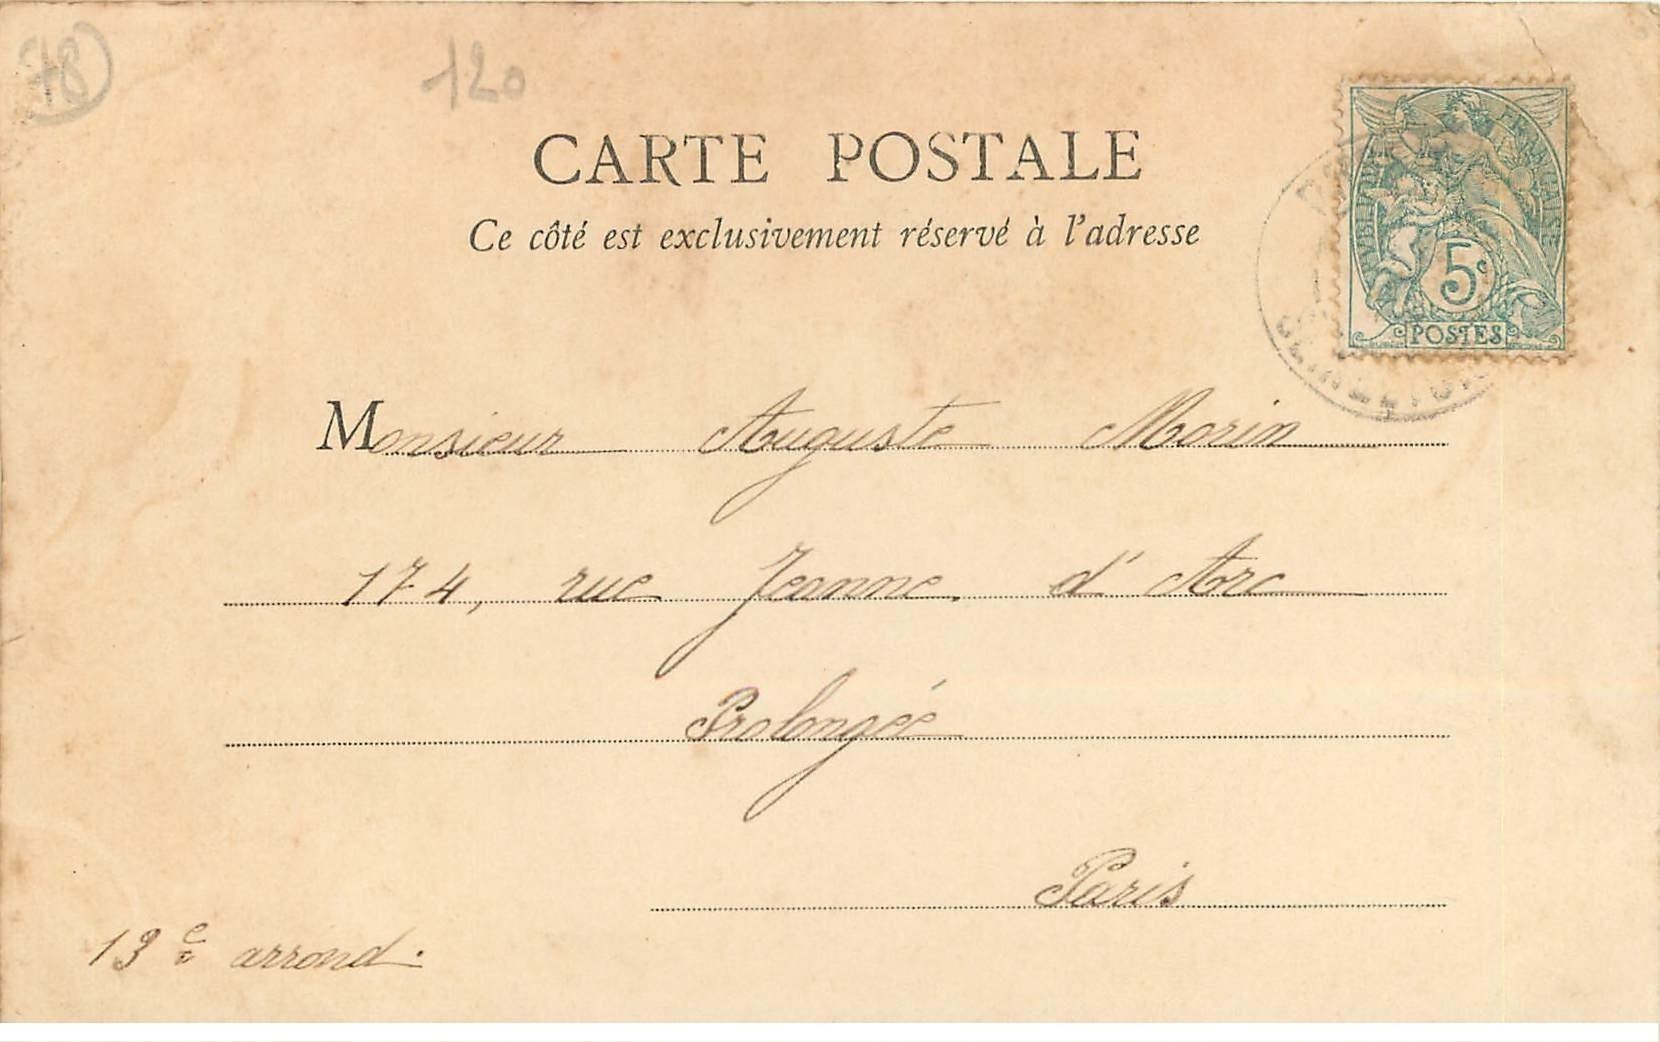 78
120
CARTE POSTALE
Ce côté est exclusivement réservé à l'adresse
REPVBLIQVE FRANÇAISE
5c
POSTES
SEINE-ET-OISE
Monsieur Auguste Morin
174, rue Jeanne d'Arc
Prolongée
Paris
13e arrond.